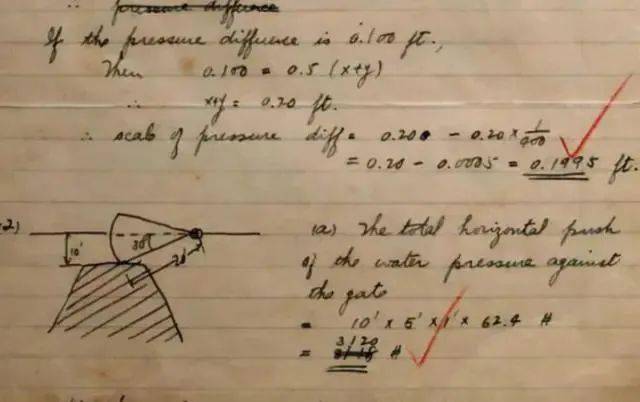 ∴ pressure difference
If the pressure difference is 0.100 ft.,
Then 0.100 = 0.5 (x+y)
∴ x+y = 0.20 ft.
∴ scale of pressure diff = 0.200 - 0.20 × 1/400
= 0.20 - 0.0005 = 0.1995 ft.
2)
10'
30°
20'
(a) The total horizontal push
of the water pressure against
the gate
= 10' × 5' × 1' × 62.4 #
= 3120 #